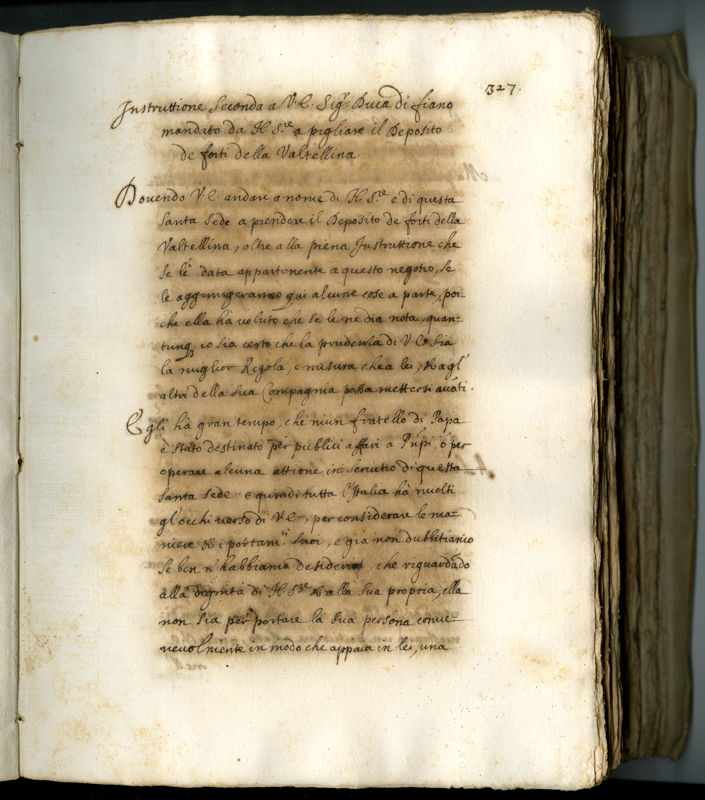 327.
Instruttione Seconda a V. E. Sig.r Duca di fiano
mandato da N. S.re a pigliare il Deposito
de forti della Valtellina
Dovendo V. E. andare a nome di N. S.re e di questa
Santa Sede a prendere il Deposito de forti della
Valtellina, oltre alla piena Instruttione che
se l'è data appartenente a questo negotio, se
le aggiungeranno qui alcune cose a parte, poi-
che ella hà voluto che se le ne dia nota, quan-
tunq3 io sia certo che la prudenza di V. E. sia
la miglior Regola, e misura che a lei, et agl'
altri della sua Compagnia possa mettersi avãti.
Egli hà gran tempo, che niun fratello di Papa
è stato destinato per publici affari a Prñpi, ò per
operare alcuna attione in servitio di questa
santa sede e quindi tutta l'Italia hà rivolti
gl'occhi verso di V. E., per considerare le ma-
niere et i portam.ti suoi, e già non dubbitiamo
se ben n'habbiamo desiderio, che riguardãdo
alla dignità di N. S.re et alla sua propria, ella
non sia per portare la sua persona conue-
neuolmente in modo che appaia in lei, una